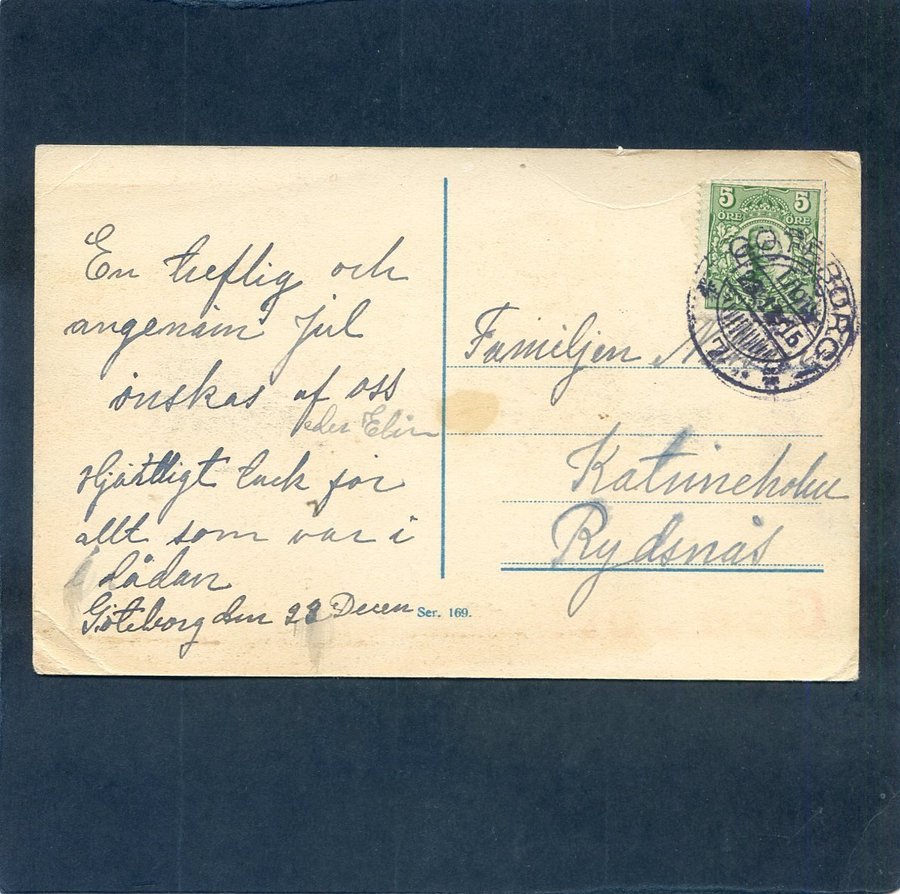 En treflig och
angenäm jul
önskas af oss
eder Elin
Hjärtligt tack för
allt som var i
lådan
Göteborg den 23 Decem
Ser. 169.
5 5
ÖRE ÖRE
GÖTEBORG
Familjen
Katrineholm
Rydsnäs